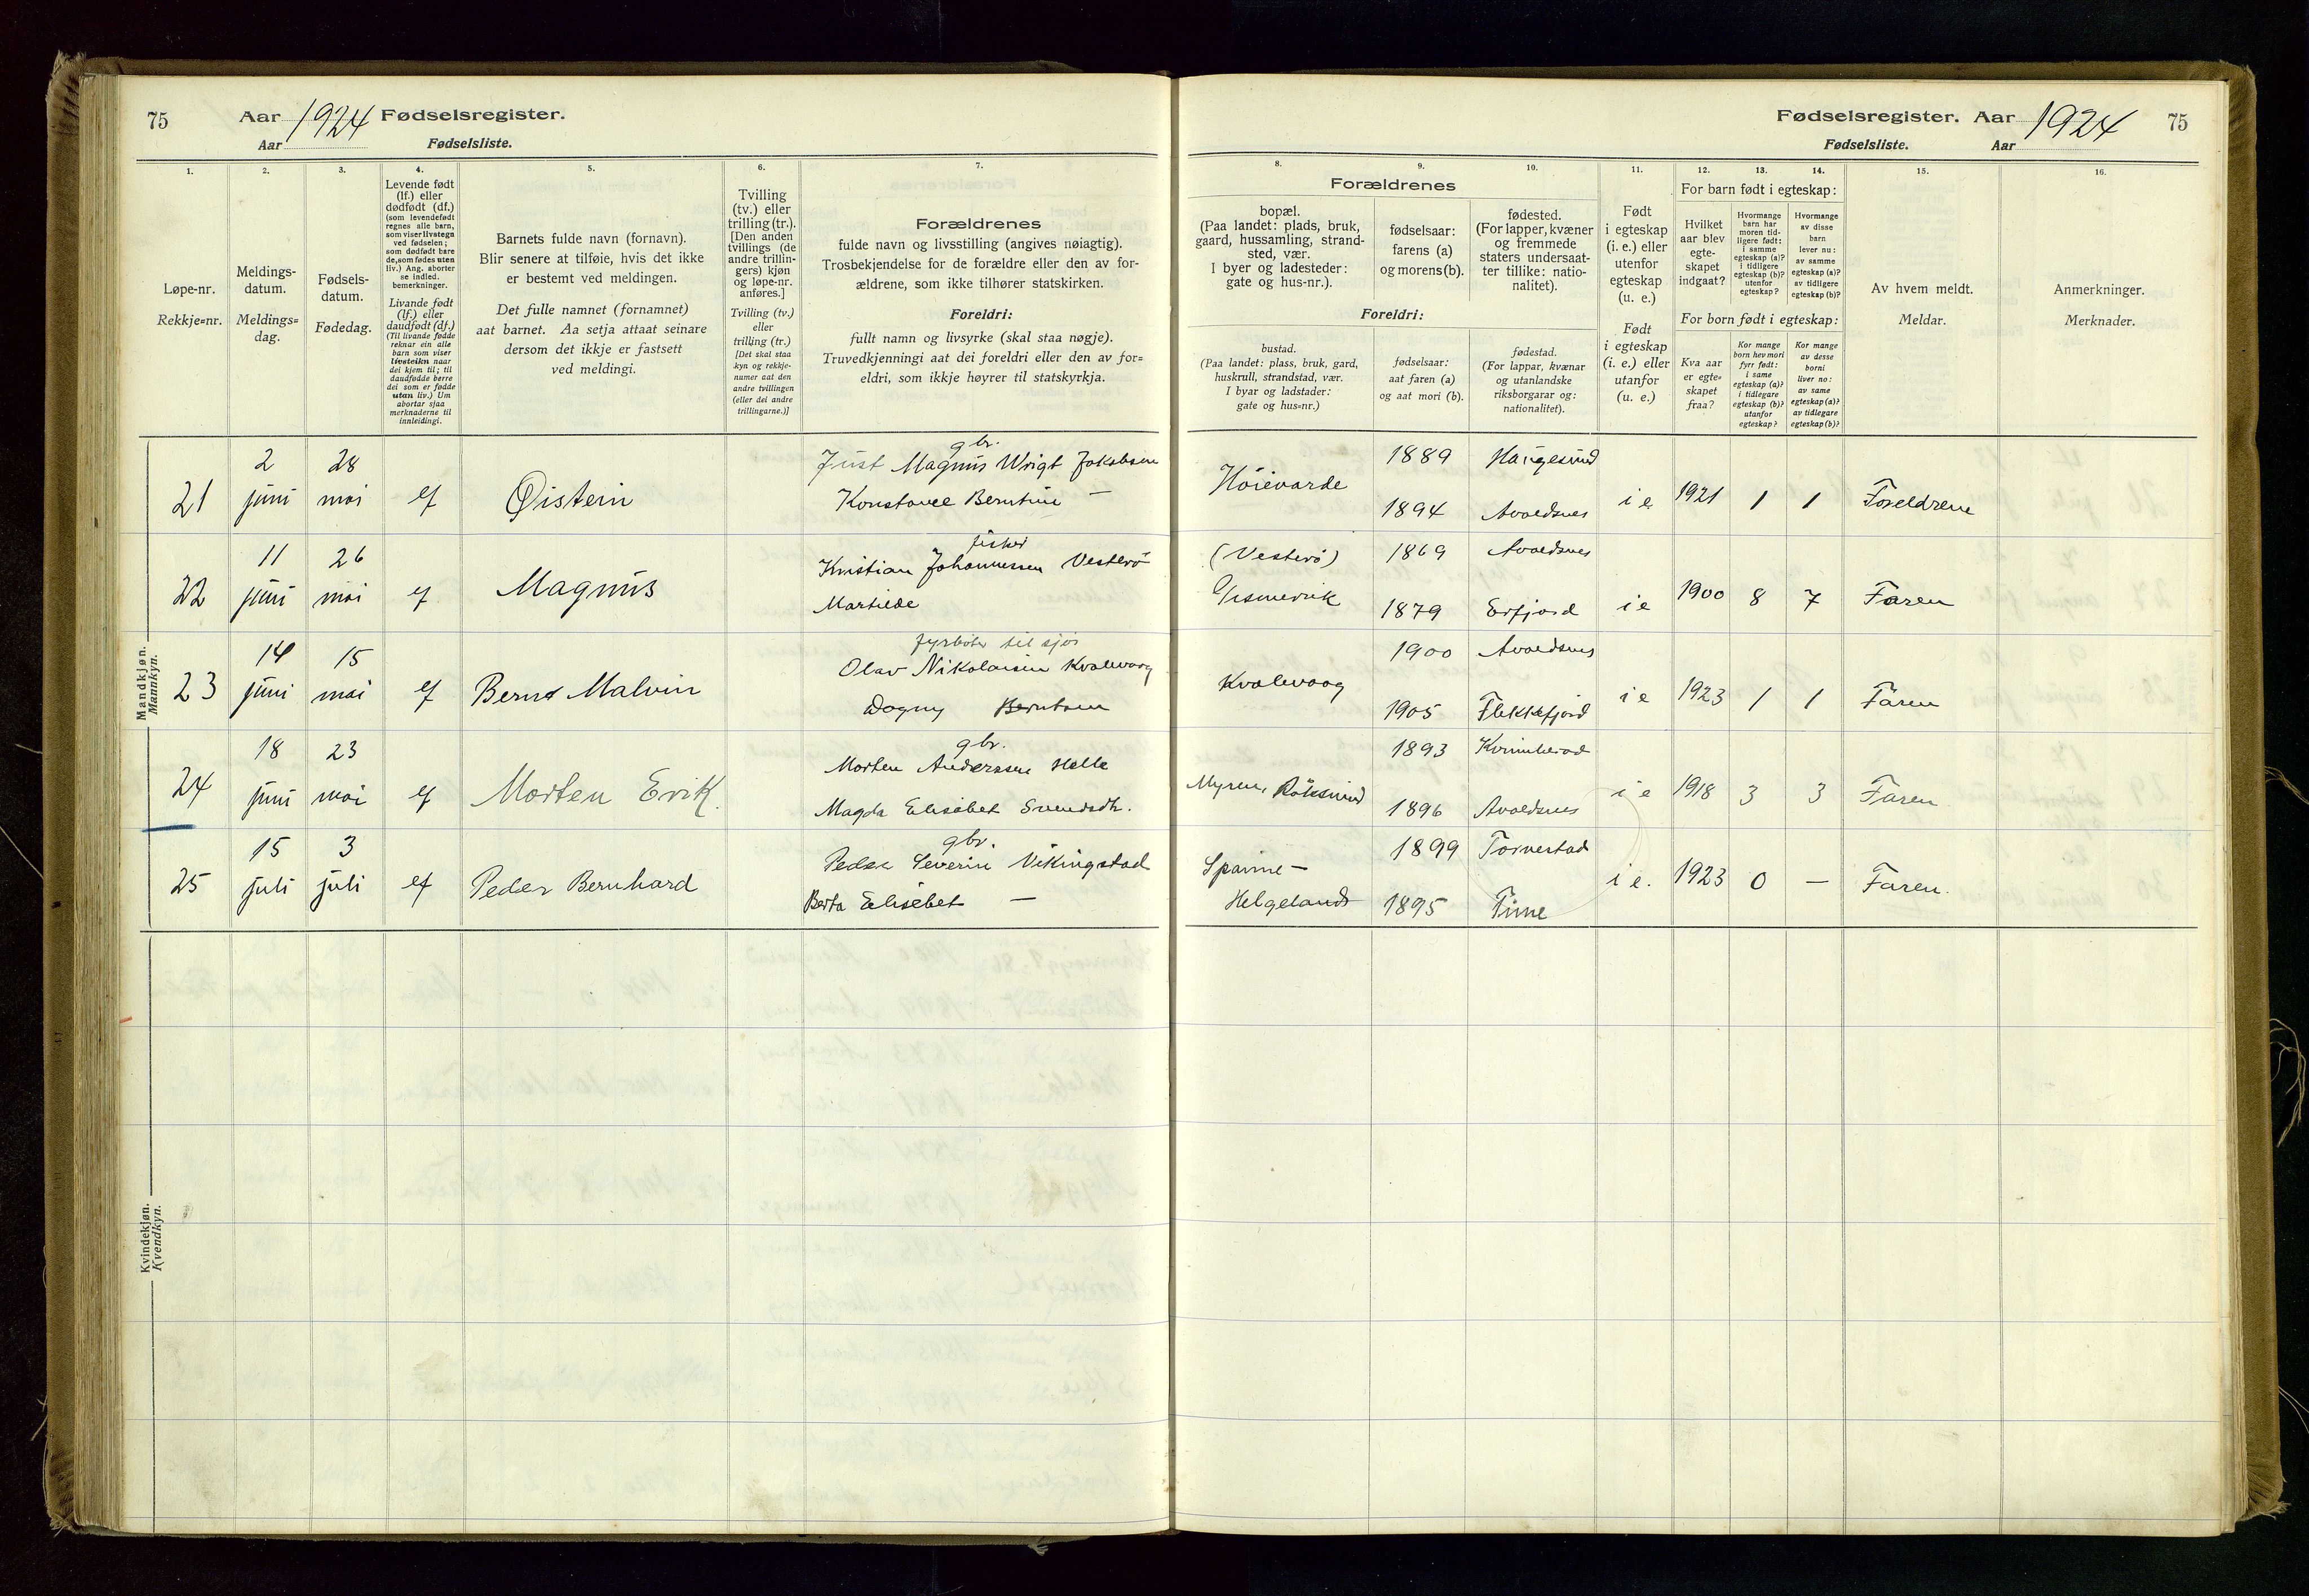 75 Aar 1924 Fødselsregister.
Aar Fødselsliste.
1. 2. 3. 4. 5. 6. 7.
Løpe-nr.
Rekkje=nr.
Meldings-
datum.
Meldings=
dag.
Fødsels-
datum.
Fødedag.
Levende født
(lf.) eller
dødfødt (df.)
(som levendefødt
regnes alle barn,
som viser livstegn
ved fødselen;
som dødfødt bare
de, som fødes uten
liv.) Ang. aborter
se indled.
bemerkninger.
Livande født
(lf.) eller
daudfødt (df.)
(Til livande fødde
reknar ein alle
barn som viser
livsteikn naar
dei kjem til; til
daudfødde berre
dei som er fødde
utan liv.) Um
abortar sjaa
merknaderne til
innleidingi.
Barnets fulde navn (fornavn).
Blir senere at tilføie, hvis det ikke
er bestemt ved meldingen.
Det fulle namnet (fornamnet)
aat barnet. Aa setja attaat seinare
dersom det ikkje er fastsett
ved meldingi.
Tvilling
(tv.) eller
trilling (tr.).
[Den anden
tvillings (de
andre trillin-
gers) kjøn
og løpe-nr.
anføres.]
Tvilling (tv.)
eller
trilling (tr.)
[Det skal staa
kyn og rekkje-
numer aat den
andre tvillingen
(eller dei andre
trillingarne.)]
Forældrenes
fulde navn og livsstilling (angives nøiagtig).
Trosbekjendelse for de forældre eller den av for-
ældrene, som ikke tilhører statskirken.
Foreldri:
fullt namn og livsyrke (skal staa nøgje).
Truvedkjenningi aat dei foreldri eller den av for=
eldri, som ikkje høyrer til statskyrkja.
Mandkjøn.
Mannkyn.
21 2 juni 28 mai lf Øistein
gbr.
Just Magnus Wrigt Jakobsen
Konstance Berntine —
22 11 juni 26 mai lf Magnus
fisker
Kristian Johannessen Vesterö
Martilde
23 14 juni 15 mai lf Bernt Malvin
fyrböter til sjøs
Olav Nikolaisen Kvalevaag
Dagny Berntsen
24 18 juni 23 mai lf Morten Erik.
gbr.
Morten Anderssen Helle
Magda Elisabet Svendsdtr.
25 15 juli 3 juli lf Peder Bernhard
gbr.
Peder Severin Vikingstad
Berta Elisabet —
Kvindekjøn.
Kvendkyn.
Fødselsregister. Aar 1924 75
Fødselsliste. Aar
8. 9. 10. 11. 12. 13. 14. 15. 16.
Forældrenes
bopæl.
(Paa landet: plads, bruk,
gaard, hussamling, strand-
sted, vær.
I byer og ladesteder:
gate og hus-nr.).
fødselsaar:
farens (a)
og morens (b).
fødested.
(For lapper, kvæner
og fremmede
staters undersaat-
ter tillike: natio-
nalitet).
Foreldri:
bustad.
(Paa landet: plass, bruk, gard,
huskrull, strandstad, vær.
I byar og ladstader:
gate og hus=nr.)
fødselsaar:
aat faren (a)
og aat mori (b).
fødestad.
(For lappar, kvænar
og utanlandske
riksborgarar og:
nationalitet).
Født
i egteskap
(i. e.) eller
utenfor
egteskap
(u. e.)
Født
i egteskap
(i. e.) eller
utanfor
(u. e.)
For barn født i egteskap:
Hvilket
aar blev
egte-
skapet
indgaat?
Hvormange
barn har
moren tid-
ligere født:
i samme
egteskap (a)?
i tidligere
egteskap (b)?
utenfor
egteskap?
Hvormange
av disse
barn
lever nu:
av samme
egteskap (a)?
av tidligere
egteskap (b)?
For born født i egteskap:
Kva aar
er egte=
skapet
fraa?
Kor mange
born hev mori
fyrr født:
i same
egteskap (a)?
i tidlegare
egteskap (b)?
utanfor
egteskap?
Kor mange
av desse
borni
liver no:
av same
egteskap (a)?
av tidlegare
egteskap (b)?
Av hvem meldt.
Meldar.
Anmerkninger.
Merknader.
Höievarde 1889 Haugesund
1894 Avaldsnes i e 1921 1 1 Foreldrene
(Vesterö) 1869 Avaldsnes
Gismervik 1879 Erfjord i e 1900 8 7 Faren
1900 Avaldsnes
Kvalevaag 1905 Flekkefjord i e 1923 1 1 Faren
1893 Kvinnherad
Myren, Röksund 1896 Avaldsnes i e 1918 3 3 Faren
1899 Torvestad
Spanne —
Helgelands 1895 Time i e. 1923 0 — Faren.